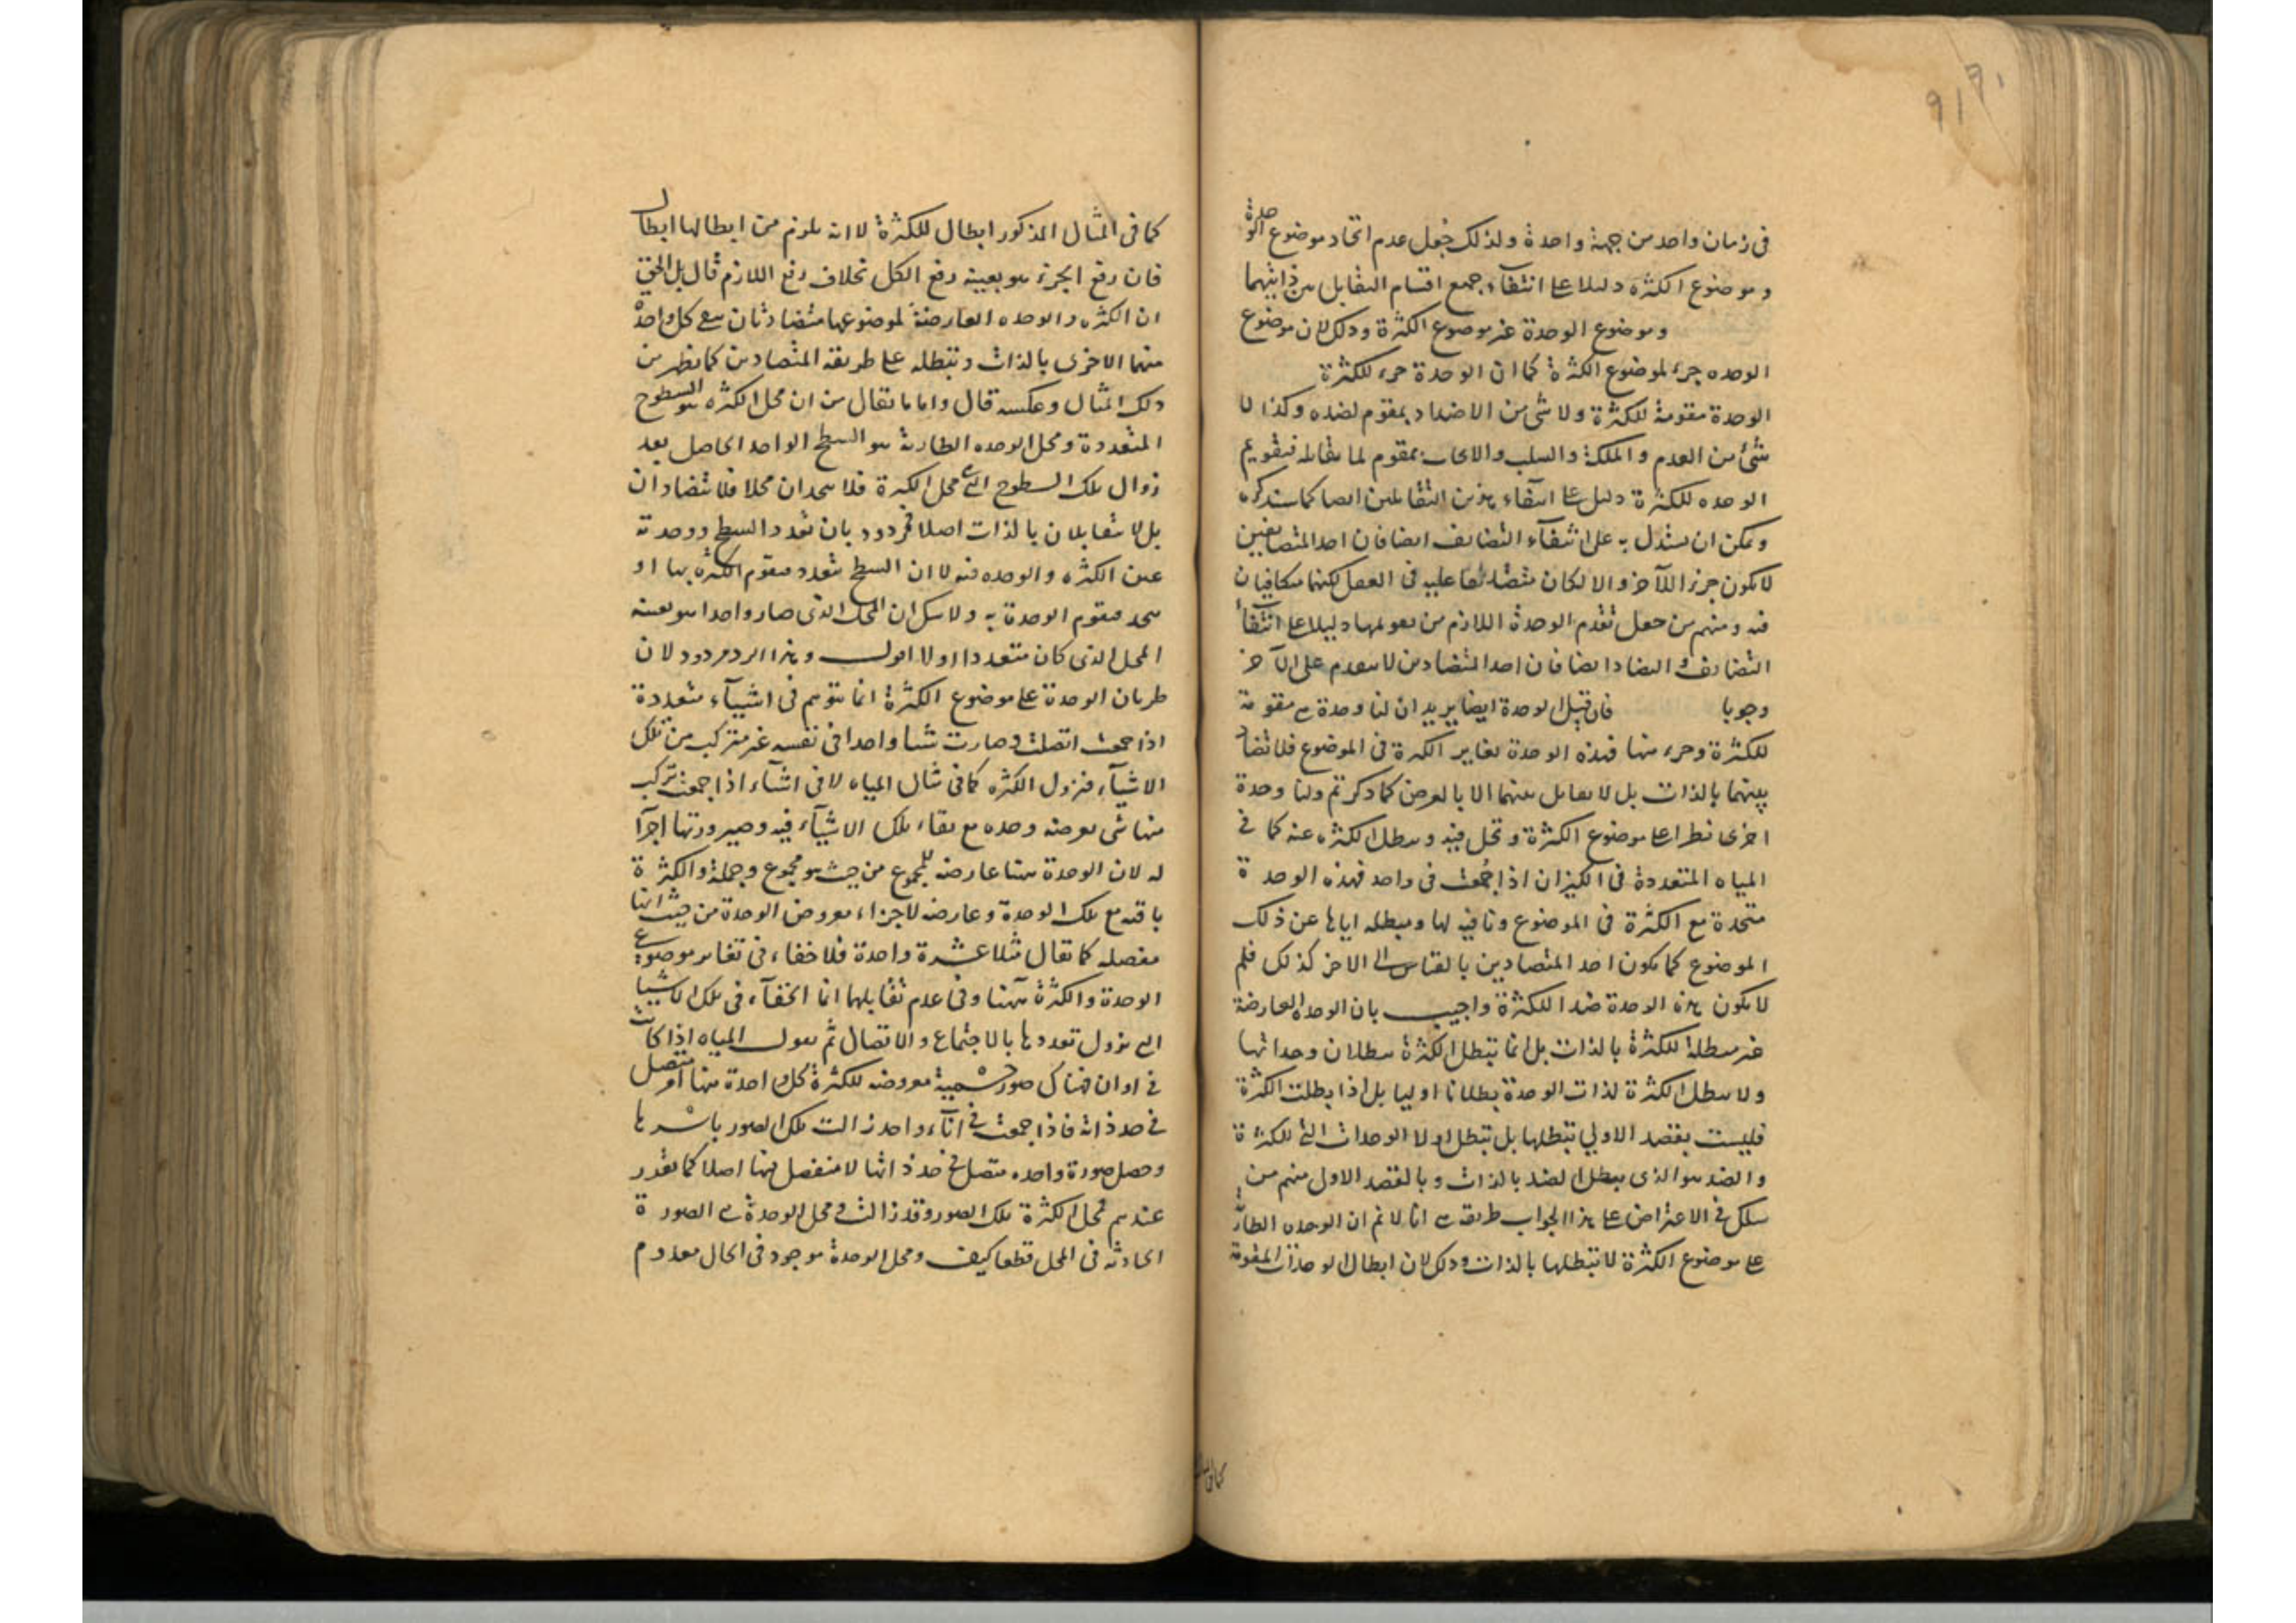 في زمان واحد من جهة واحدة ولذلك جعل عدم اتحاد موضوع الوحدة
وموضوع الكثرة دليلا على انتفاء جميع اقسام التقابل بين ذاتيهما
وموضوع الوحدة غير موضوع الكثرة وذلك لان موضوع
الوحده جزء لموضوع الكثرة كما ان الوحدة جزء للكثرة
الوحدة مقومة للكثرة ولا شي من الاضداد بمقوم لضده وكذا لا
شئ من العدم والملكة والسلب والايجاب بمقوم لما يقابله فتقويم
الوحده للكثرة دليل على انتفاء هذين التقابلين ايضا كما ستذكره
ويمكن ان يستدل به على انتفآء التضايف ايضا فان احد المتضايفين
لا يكون جزءا للآخر والا لكان متقدما عليه في العقل لكنهما متكافيان
فيه ومنهم من جعل تقدم الوحدة اللازم من تقويمها دليلا على انتفآء
التضايف والتضاد ايضا فان احد المتضادين لا يتقدم على الآخر
وجوبا فان قيل الوحدة ايضا يريد ان لنا وحدة هي مقومة
للكثرة وجزء منها فهذه الوحدة تغاير الكثرة في الموضوع فلا تضاد
بينهما بالذات بل لا تقابل بينهما الا بالعرض كما ذكرتم ولنا وحدة
اخرى تطرا على موضوع الكثرة وتحل فيه وتبطل الكثره عنه كما في
المياه المتعددة في الكيزان اذا جُمعت في واحد فهذه الوحدة
متحدة مع الكثرة في الموضوع ونافيه لها ومبطله اياها عن ذلك
الموضوع كما يكون احد المتضادين بالقياس الى الاخر كذلك فلم
لا يكون هذه الوحدة ضدا للكثرة واجيب بان الوحده العارضة
غير مبطلة للكثرة بالذات بل انما تبطل الكثرة ببطلان وحداتها
ولا تبطل الكثرة لذات الوحدة بطلانا اوليا بل اذا بطلت الكثرة
فليست بقصد الاولي تبطلها بل تبطل اولا الوحدات التي للكثرة
والضد هو الذي يبطل الضد بالذات وبالقصد الاول منهم من
سلك في الاعتراض على هذا الجواب طريقه هي انا لا نم ان الوحده الطارئة
على موضوع الكثرة لا تبطلها بالذات وذلك لان ابطال الوحدات المقومة
كما في المثال
كما في المثال المذكور ابطال للكثرة لا انه يلزم من ابطالها ابطال
فان رفع الجزء هو بعينه رفع الكل بخلاف رفع اللازم قال بل الحق
ان الكثره والوحده العارضة لموضوعها متضادتان ينفي كل واحدة
منهما الاخرى بالذات وتبطله على طريقه المتضادين كما يظهر من
ذلك المثال وعكسه قال واما ما يقال من ان محل الكثره هو السطوح
المتعددة ومحل الوحده الطارية هو السطح الواحد الحاصل بعد
زوال تلك السطوح التي هي محل الكثرة فلا يتحدان محلا فلا تتضادان
بل لا يتقابلان بالذات اصلا فمردود بان تعدد السطح ووحدته
عين الكثره والوحده فيه لا ان السطح متعدد فتقوم الكثرة بها او
متحد فتقوم الوحدة به ولا شك ان المحل الذي صار واحدا هو بعينه
المحل الذي كان متعددا اولا اقول وهذا الرد مردود لان
طريان الوحدة على موضوع الكثرة انما يتوهم في اشيآء متعددة
اذا جمعت اتصلت وصارت شيا واحدا في نفسه غير متركب من تلك
الاشيآء فتزول الكثره كما في مثال المياه لا في اشيآء اذا جمعت تركب
منها شي يعرضه وحده مع بقاء تلك الاشيآء فيه وصيرورتها اجزآ
له لان الوحدة هنا عارضه للمجموع من حيث هو مجموع وجملة والكثرة
باقيه مع تلك الوحدة وعارضه لاجزاء معروض الوحدة من حيث انها
مفصله كما يقال مثلا عشرة واحدة فلا خفاء في تغاير موضوعي
الوحدة والكثرة ههنا وفي عدم تقابلهما انما الخفآء في تلك الاشيآ
التي تزول تعددها بالاجتماع والاتصال ثم نقول المياه اذا كانت
في اوان فهناك صور جسمية معروضه للكثرة كل واحدة منها امر متصل
في حد ذاته فاذا جمعت في انآء واحد زالت تلك الصور باسرها
وحصل صورة واحده متصلة في حد ذاتها لا مفصل فيها اصلا كما تقرر
عندهم فمحل الكثرة تلك الصور وقد زالت ومحل الوحدة هي الصورة
الحادثه في المحل قطعا كيف ومحل الوحدة موجود في الحال معدوم